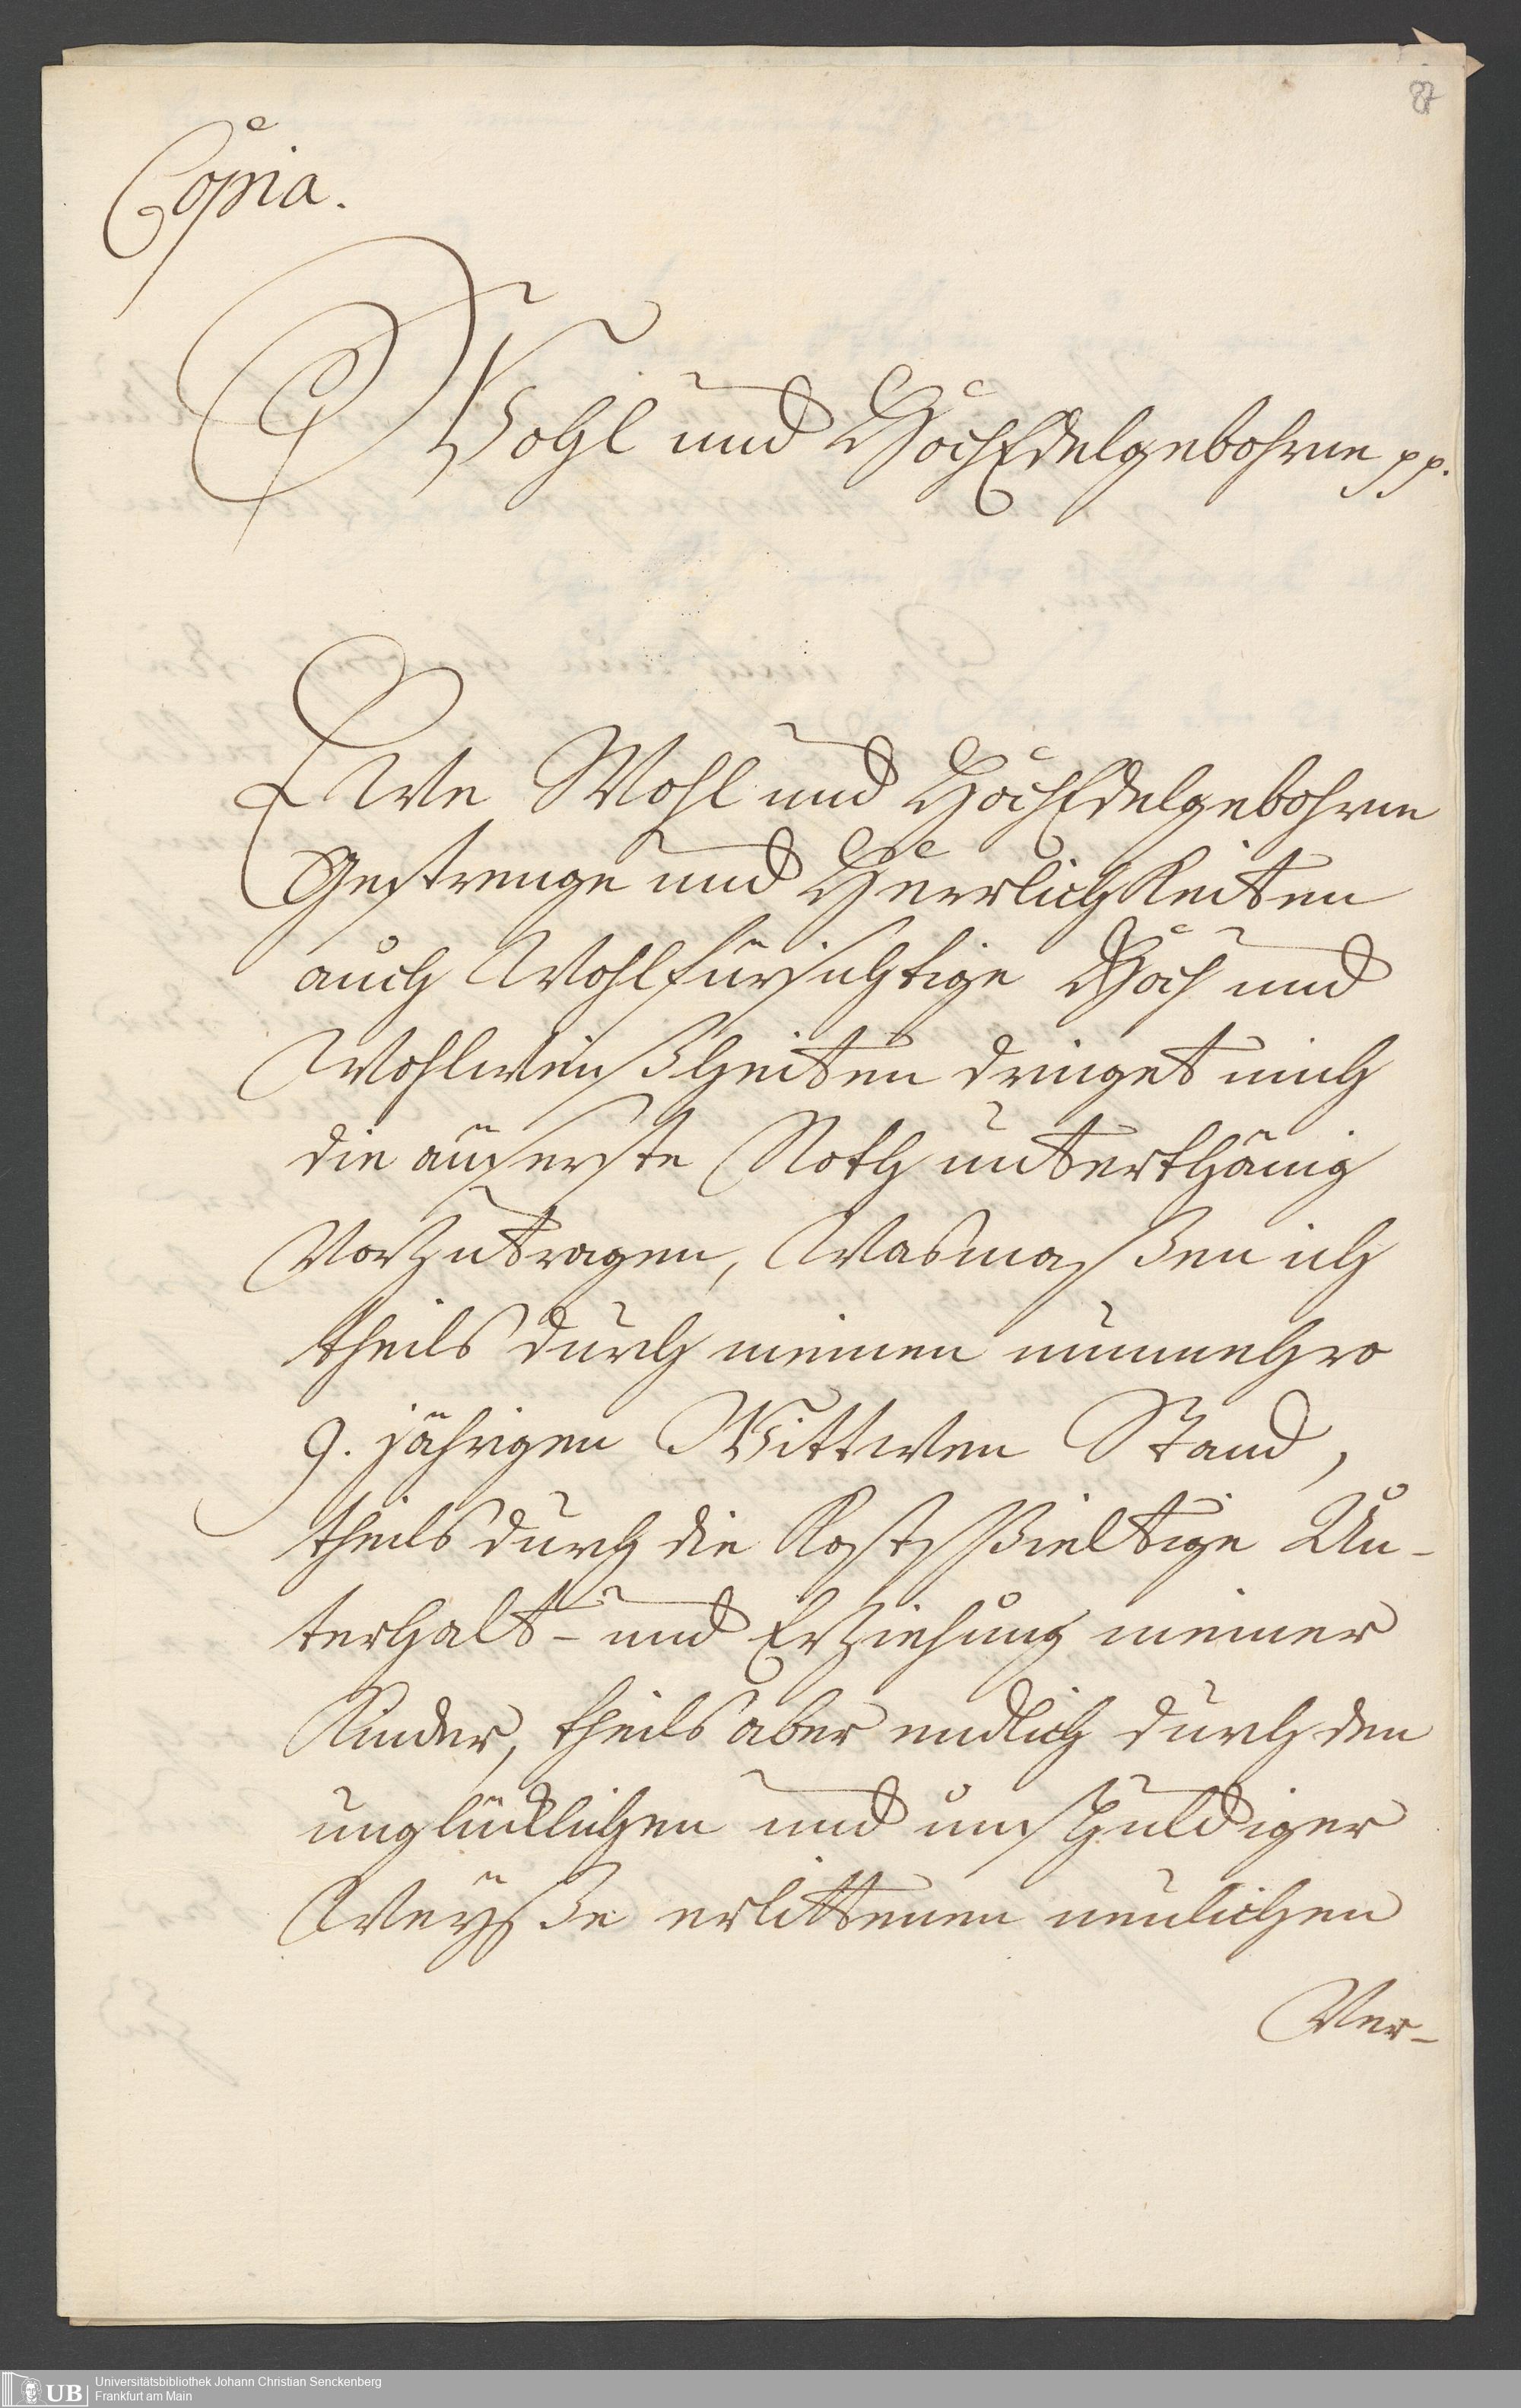 87
Copia.
Wohl und HochEdelgebohrne pp.
Ewe Wohl und HochEdelgebohrne
Gestrenge und Herrlichkeiten
auch Wohlfürsichtige Hoch und
Wohlweißheiten dringet mich
die äuserste Noth unterthänig
vorzutragen, Wasmaßen ich
theils durch meinen nunmehro
9. jährigen Wittwen Stand,
theils durch die Kostspieltige Un-
terhalt- und Erziehung meiner
Kinder, theils aber endlich durch den
unglücklichen und unschuldiger
Weyße erlittenen neulichen
Ver-
UB
Universitätsbibliothek Johann Christian Senckenberg
Frankfurt am Main